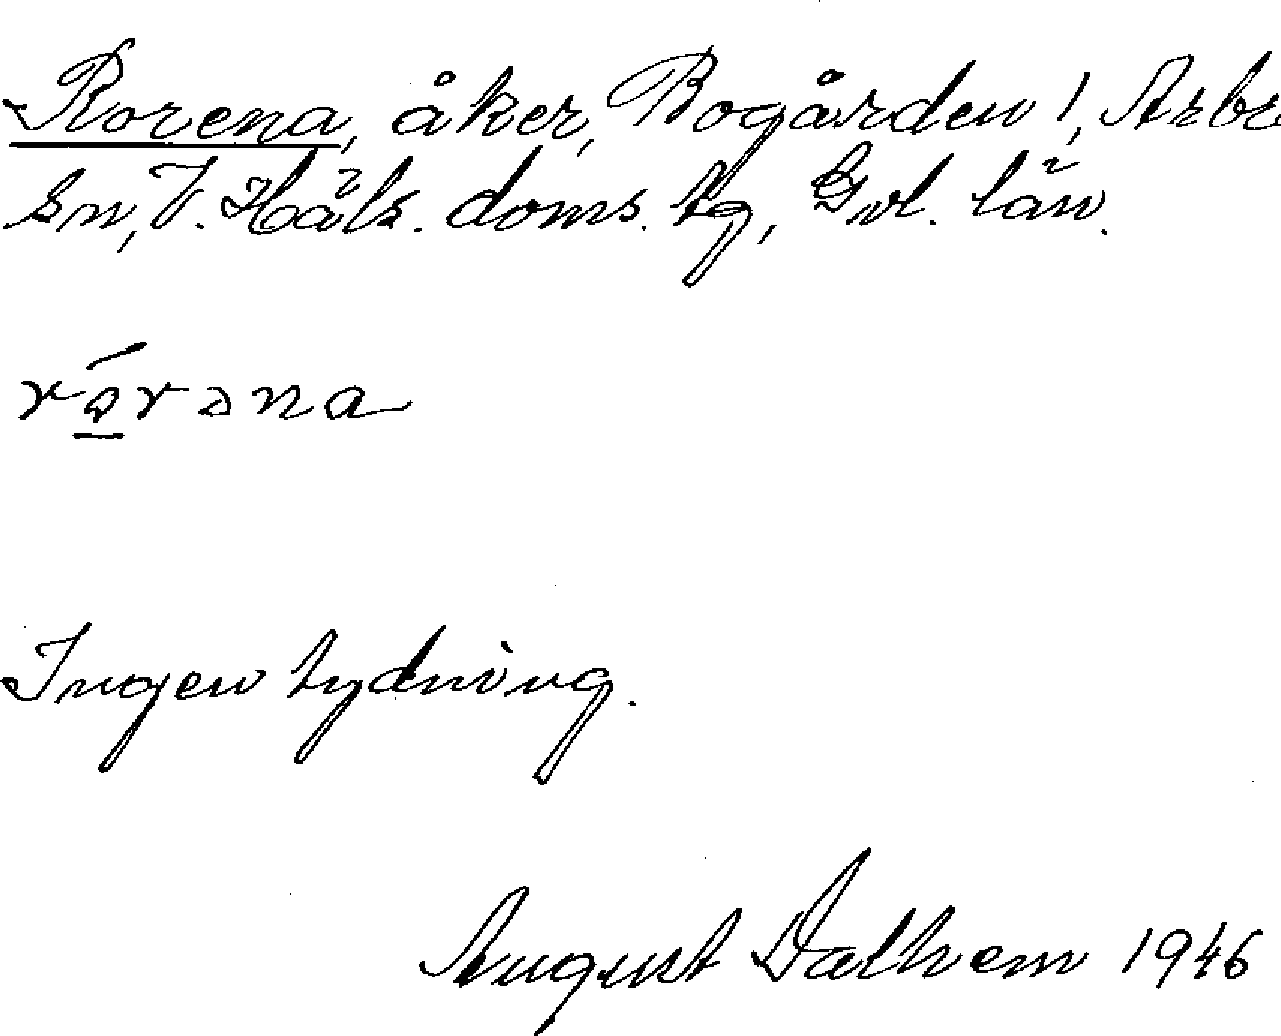 Rorena, åker, Bogården 1, Arbrå
sn, V. Häls. doms. tg, Gvl. län.
ró̠rəna
Ingen tydning.
August Dalhem 1946